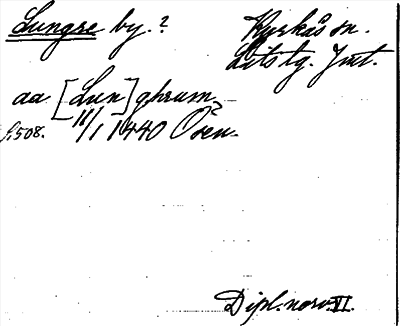 Lungre by.? Kyrkås sn.
Lits tg. Jmt.
aa [Lun]ghrum?
s. 508. 11/1 1440 Ösen.
Dipl. norv. VI.